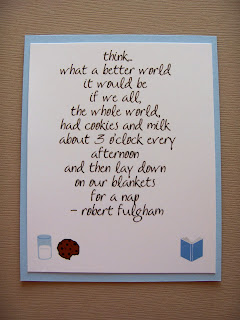 think..
what a better world
it would be
if we all,
the whole world,
had cookies and milk
about 3 o'clock every
afternoon
and then lay down
on our blankets
for a nap
- robert fulgham